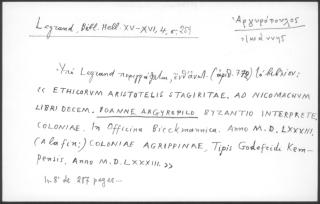 Legrand, Bibl. Hell. XV-XVI, 4, σ. 251
Ἀργυρόπουλος
Ἰωάννης
Ὑπὸ Legrand περιγράφεται, ἐνθ' ἀνωτ. (ἀριθ. 770) τὸ βιβλίον:
« ETHICORUM ARISTOTELIS STAGIRITAE, AD NICOMACHUM
LIBRI DECEM. IOANNE ARGYROPILO BYZANTIO INTERPRETE.
COLONIAE. In Officina Birckmannica. Anno M.D.LXXXIII.
(A la fin:) COLONIAE AGRIPPINAE, Tipis Godefridi Kem-
pensis. Anno M.D.LXXXIII. »
In 8° de 287 pages...